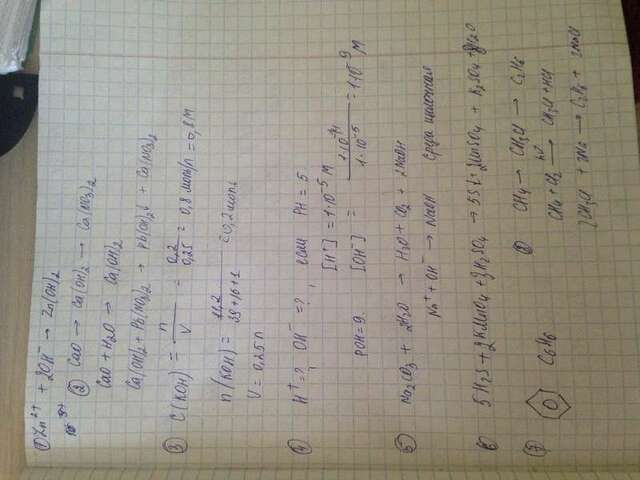 ① Zn²⁺ + 2OH⁻ → Zn(OH)₂
② CaO → Ca(OH)₂ → Ca(NO₃)₂
CaO + H₂O → Ca(OH)₂
Ca(OH)₂ + Pb(NO₃)₂ → Pb(OH)₂↓ + Ca(NO₃)₂
③ C(KOH) = n/V = 0,2/0,25 = 0,8 моль/л = 0,8 М
n(KOH) = 11,2/(39+16+1) = 0,2 моль
V = 0,25 л
④ H⁺ = ?, OH⁻ = ?, если PH = 5
[H⁺] = 1·10⁻⁵ М
POH = 9. [OH⁻] = 1·10⁻¹⁴/1·10⁻⁵ = 1·10⁻⁹ М
5 Na₂CO₃ + 2H₂O → H₂O + CO₂ + 2NaOH
Na⁺ + OH⁻ → NaOH Среда щелочная
6 5H₂S + 2KMnO₄ + 3H₂SO₄ → 5S↓ + 2MnSO₄ + K₂SO₄ + 8H₂O
⑦ C₆H₆
⑧ CH₄ → CH₃Cl → C₂H₆
CH₄ + Cl₂ hν→ CH₃Cl + HCl
2CH₃Cl + 2Na → C₂H₆ + 2NaCl